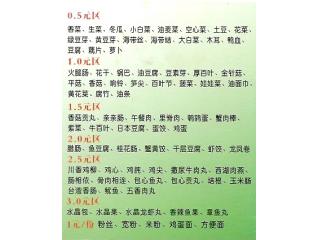 0.5元区
香菜、生菜、冬瓜、小白菜、油麦菜、空心菜、土豆、花菜、
绿豆芽、黄豆芽、海带丝、海带结、大白菜、木耳、鸭血、
豆腐、藕片、萝卜
1.0元区
火腿肠、花干、锅巴、油豆腐、豆素芽、厚百叶、金针菇、
平菇、香菇、响铃、笋尖、百叶节、菠菜、娃娃菜、油面巾、
黄花菜、腐竹、油条
1.5元区
香菇贡丸、亲亲肠、午餐肉、里脊肉、鹌鹑蛋、蟹肉棒、
紫菜、牛百叶、日本豆腐、蛋饺、鸡蛋
2.0元区
腊肠、鱼豆腐、桂花肠、蟹黄饺、千层豆腐、虾饺、龙凤卷
2.5元区
川香鸡柳、鸡心、鸡肫、鸡尖、撒尿牛肉丸、西湖肉燕、
肠相依、骨肉相连、包心鱼丸、包心贡丸、培根、玉米肠
台湾香肠、鱿鱼、五香肉丸
3.0元区
水晶包、水晶果、水晶龙虾丸、香辣鱼果、章鱼丸
1元/份 粉丝、宽粉、米粉、鸡蛋面、方便面